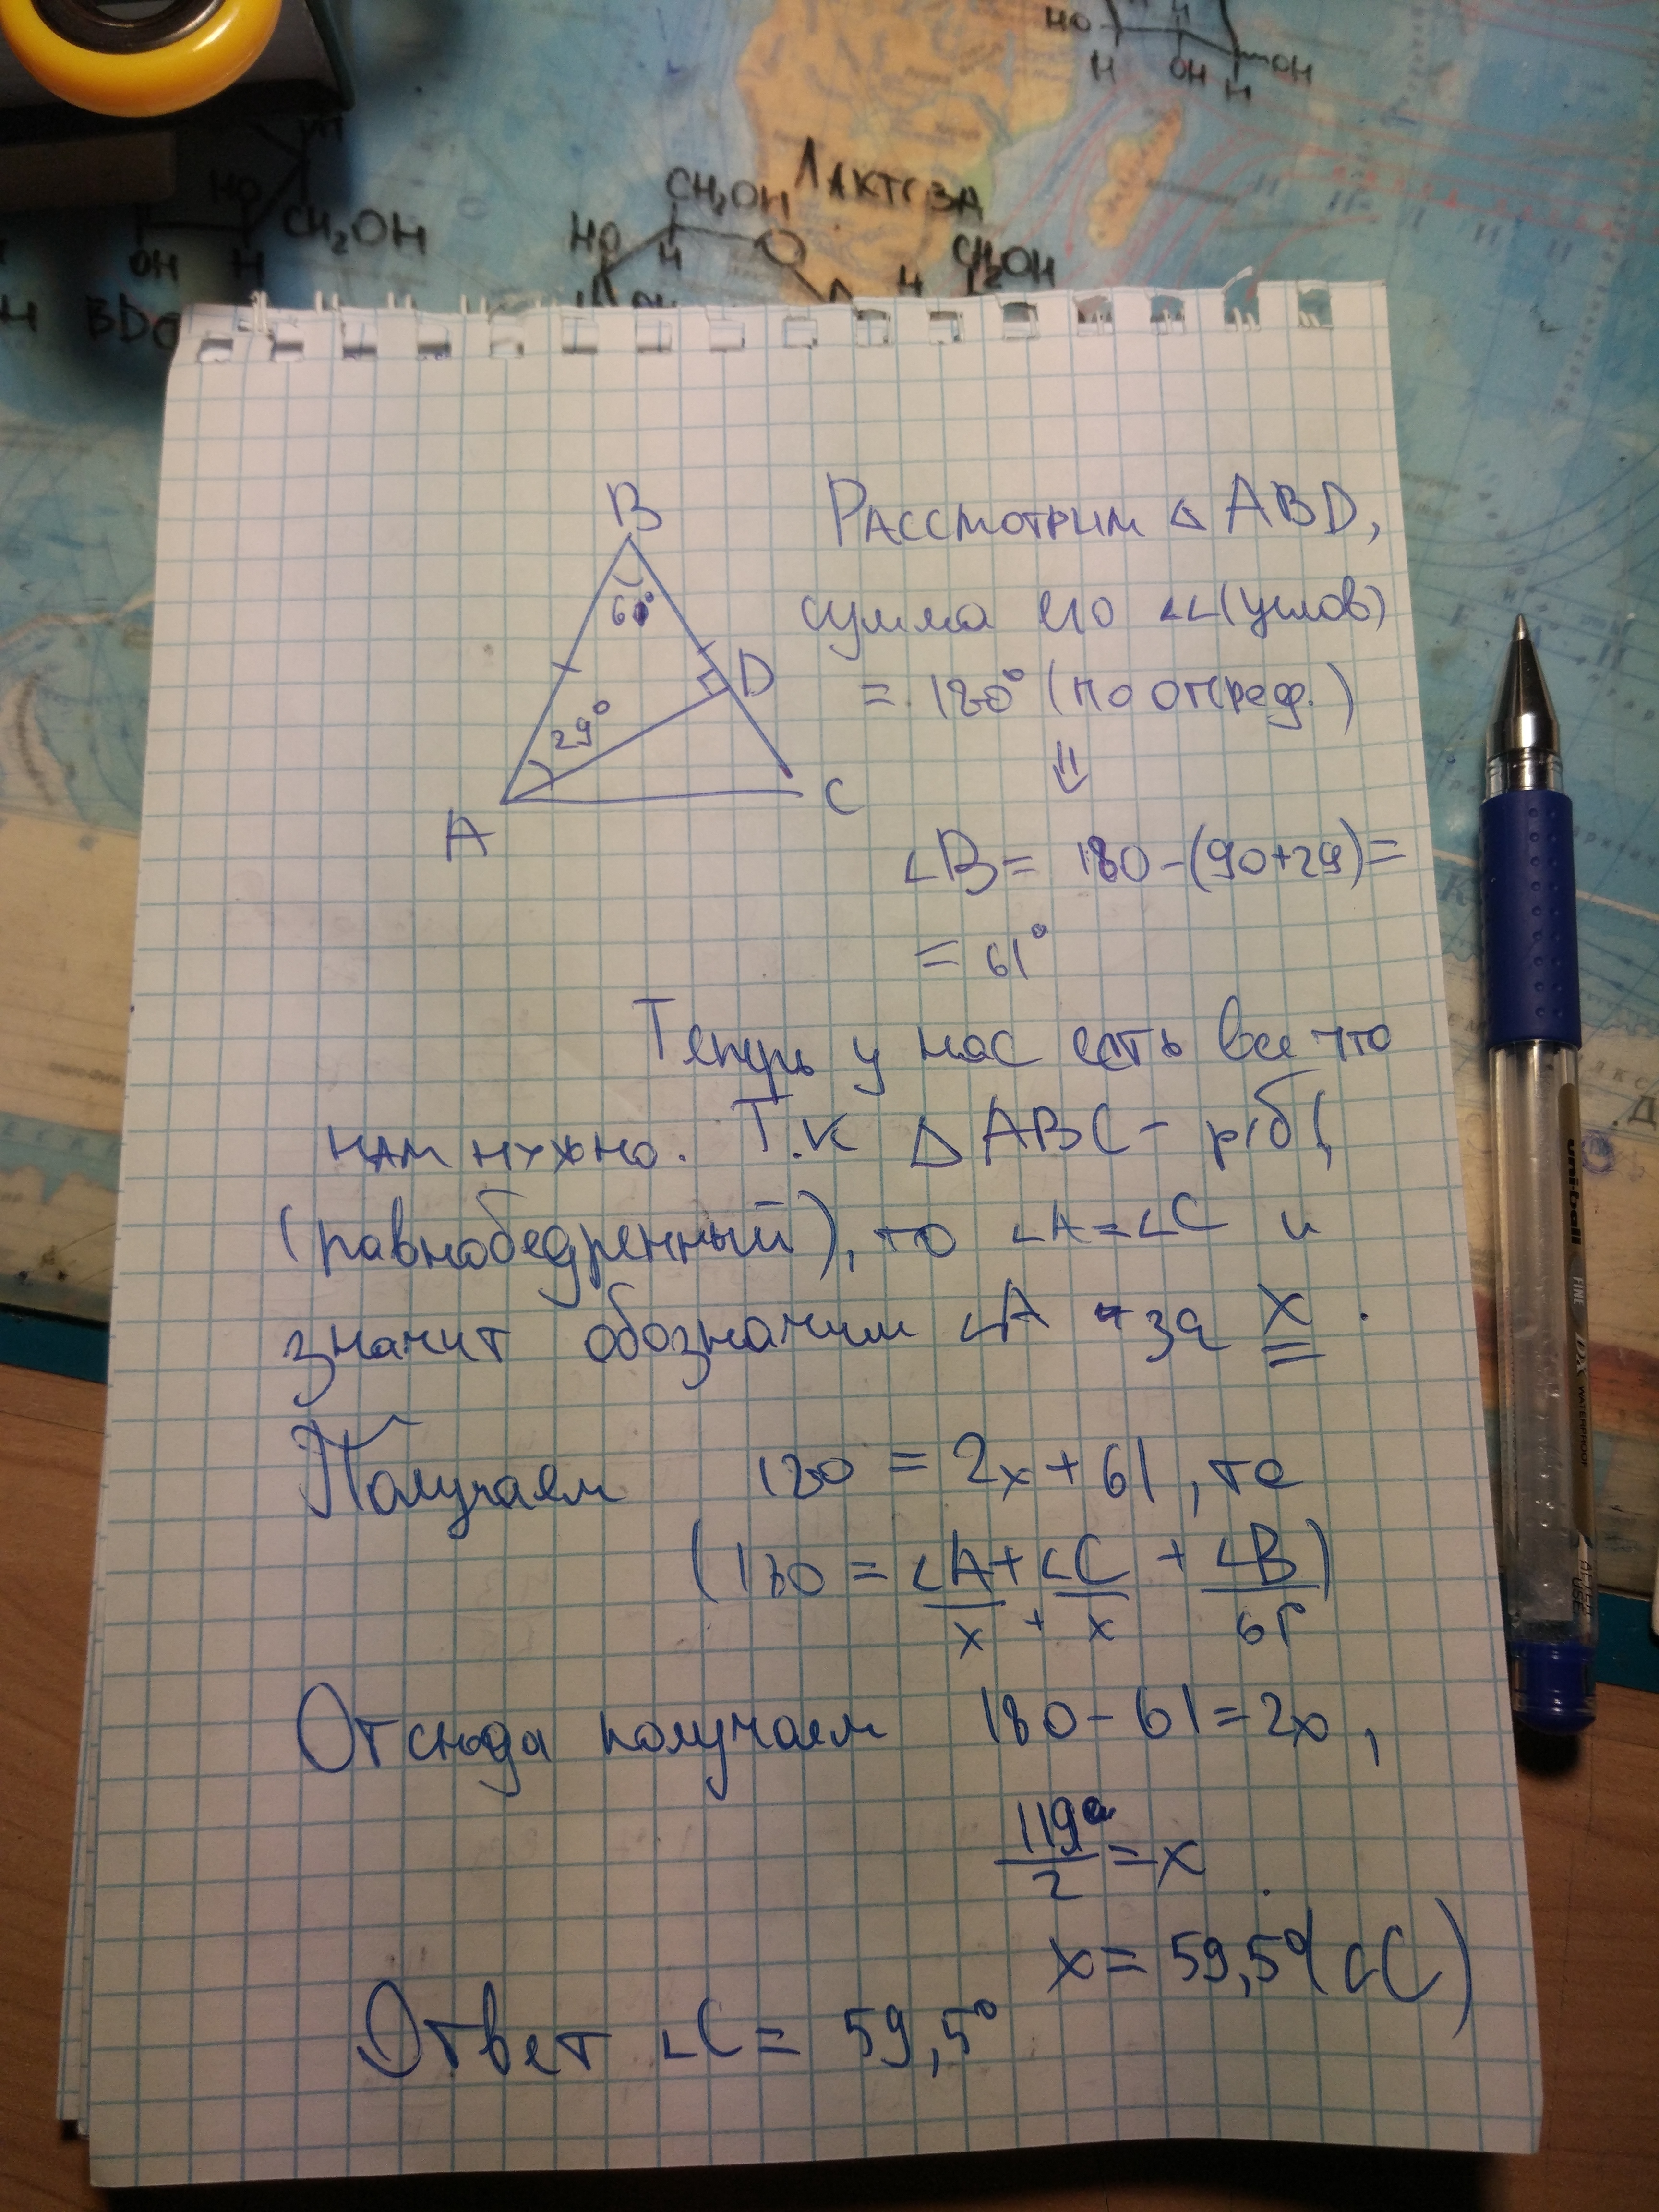 HO
H
OH
H
OH
HO
CH₂OH
OH
H
CH₂OH
ЛАКТОЗА
HO
H
O
H
CH₂OH
OH
B
60°
D
29°
A
C
Рассмотрим △ ABD,
сумма его ∠∠(углов)
= 180° (по опред.)
⇓
∠B = 180-(90+29)=
= 61°
Теперь у нас есть все что
нам нужно. Т.к △ ABC - р/б
(равнобедренный), то ∠A=∠C и
значит обозначим ∠A - за x.
Получаем 180 = 2x+61, то
(180 = ∠A + ∠C + ∠B)
x + x 61
Отсюда получаем 180-61=2x,
119°/2 = x
x = 59,5° (∠C)
Ответ ∠C = 59,5°
uni-ball
FINE
DX
WATERPROOF